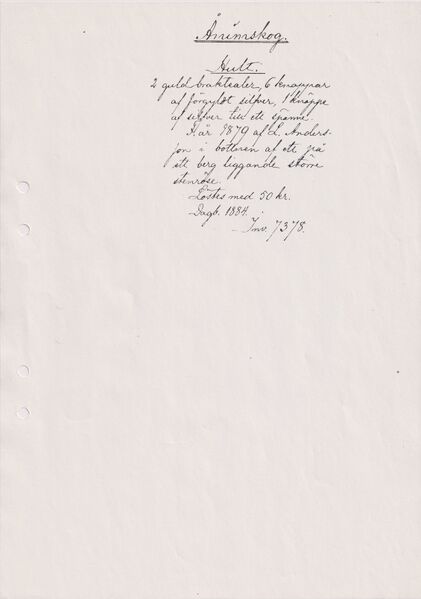 Ånimskog.
Hult.
2 guld brakteater, 6 knappar
af förgyldt silfver, 1 knäppe
af silfver till ett spänne.
H. är 1879 af L. Anders-
son i bottnen af ett på
ett berg liggande större
stenröse.
Löstes med 50 kr.
Dagb. 1884.
Inv. 7378.